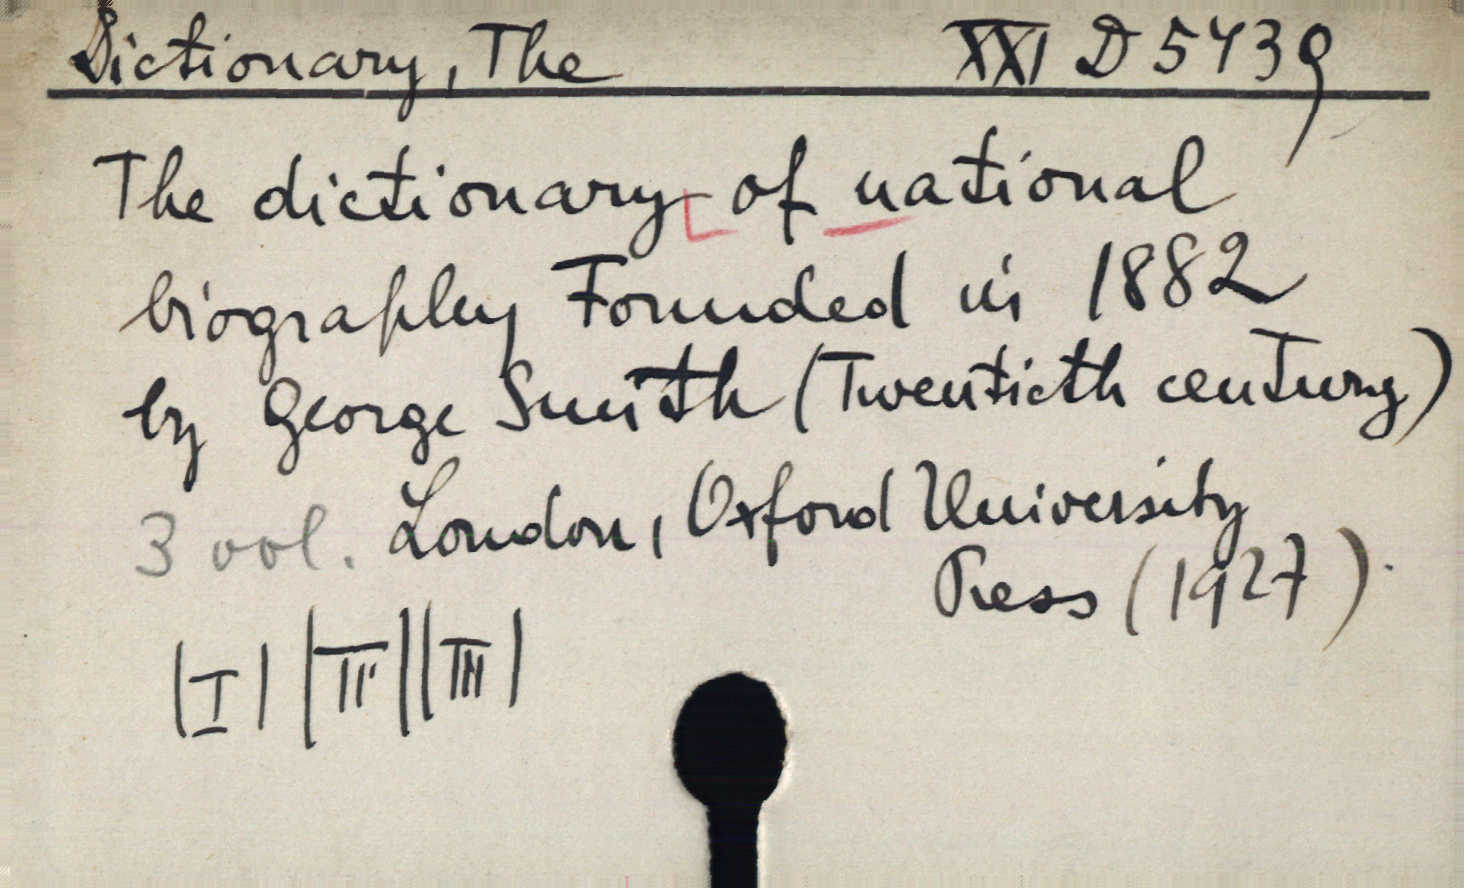 Dictionary, The XXI D 5439
The dictionary of national
biography Founded in 1882
by George Smith (Twentieth century)
3 vol. London, Oxford University
Press (1927).
|I| |II| |III|